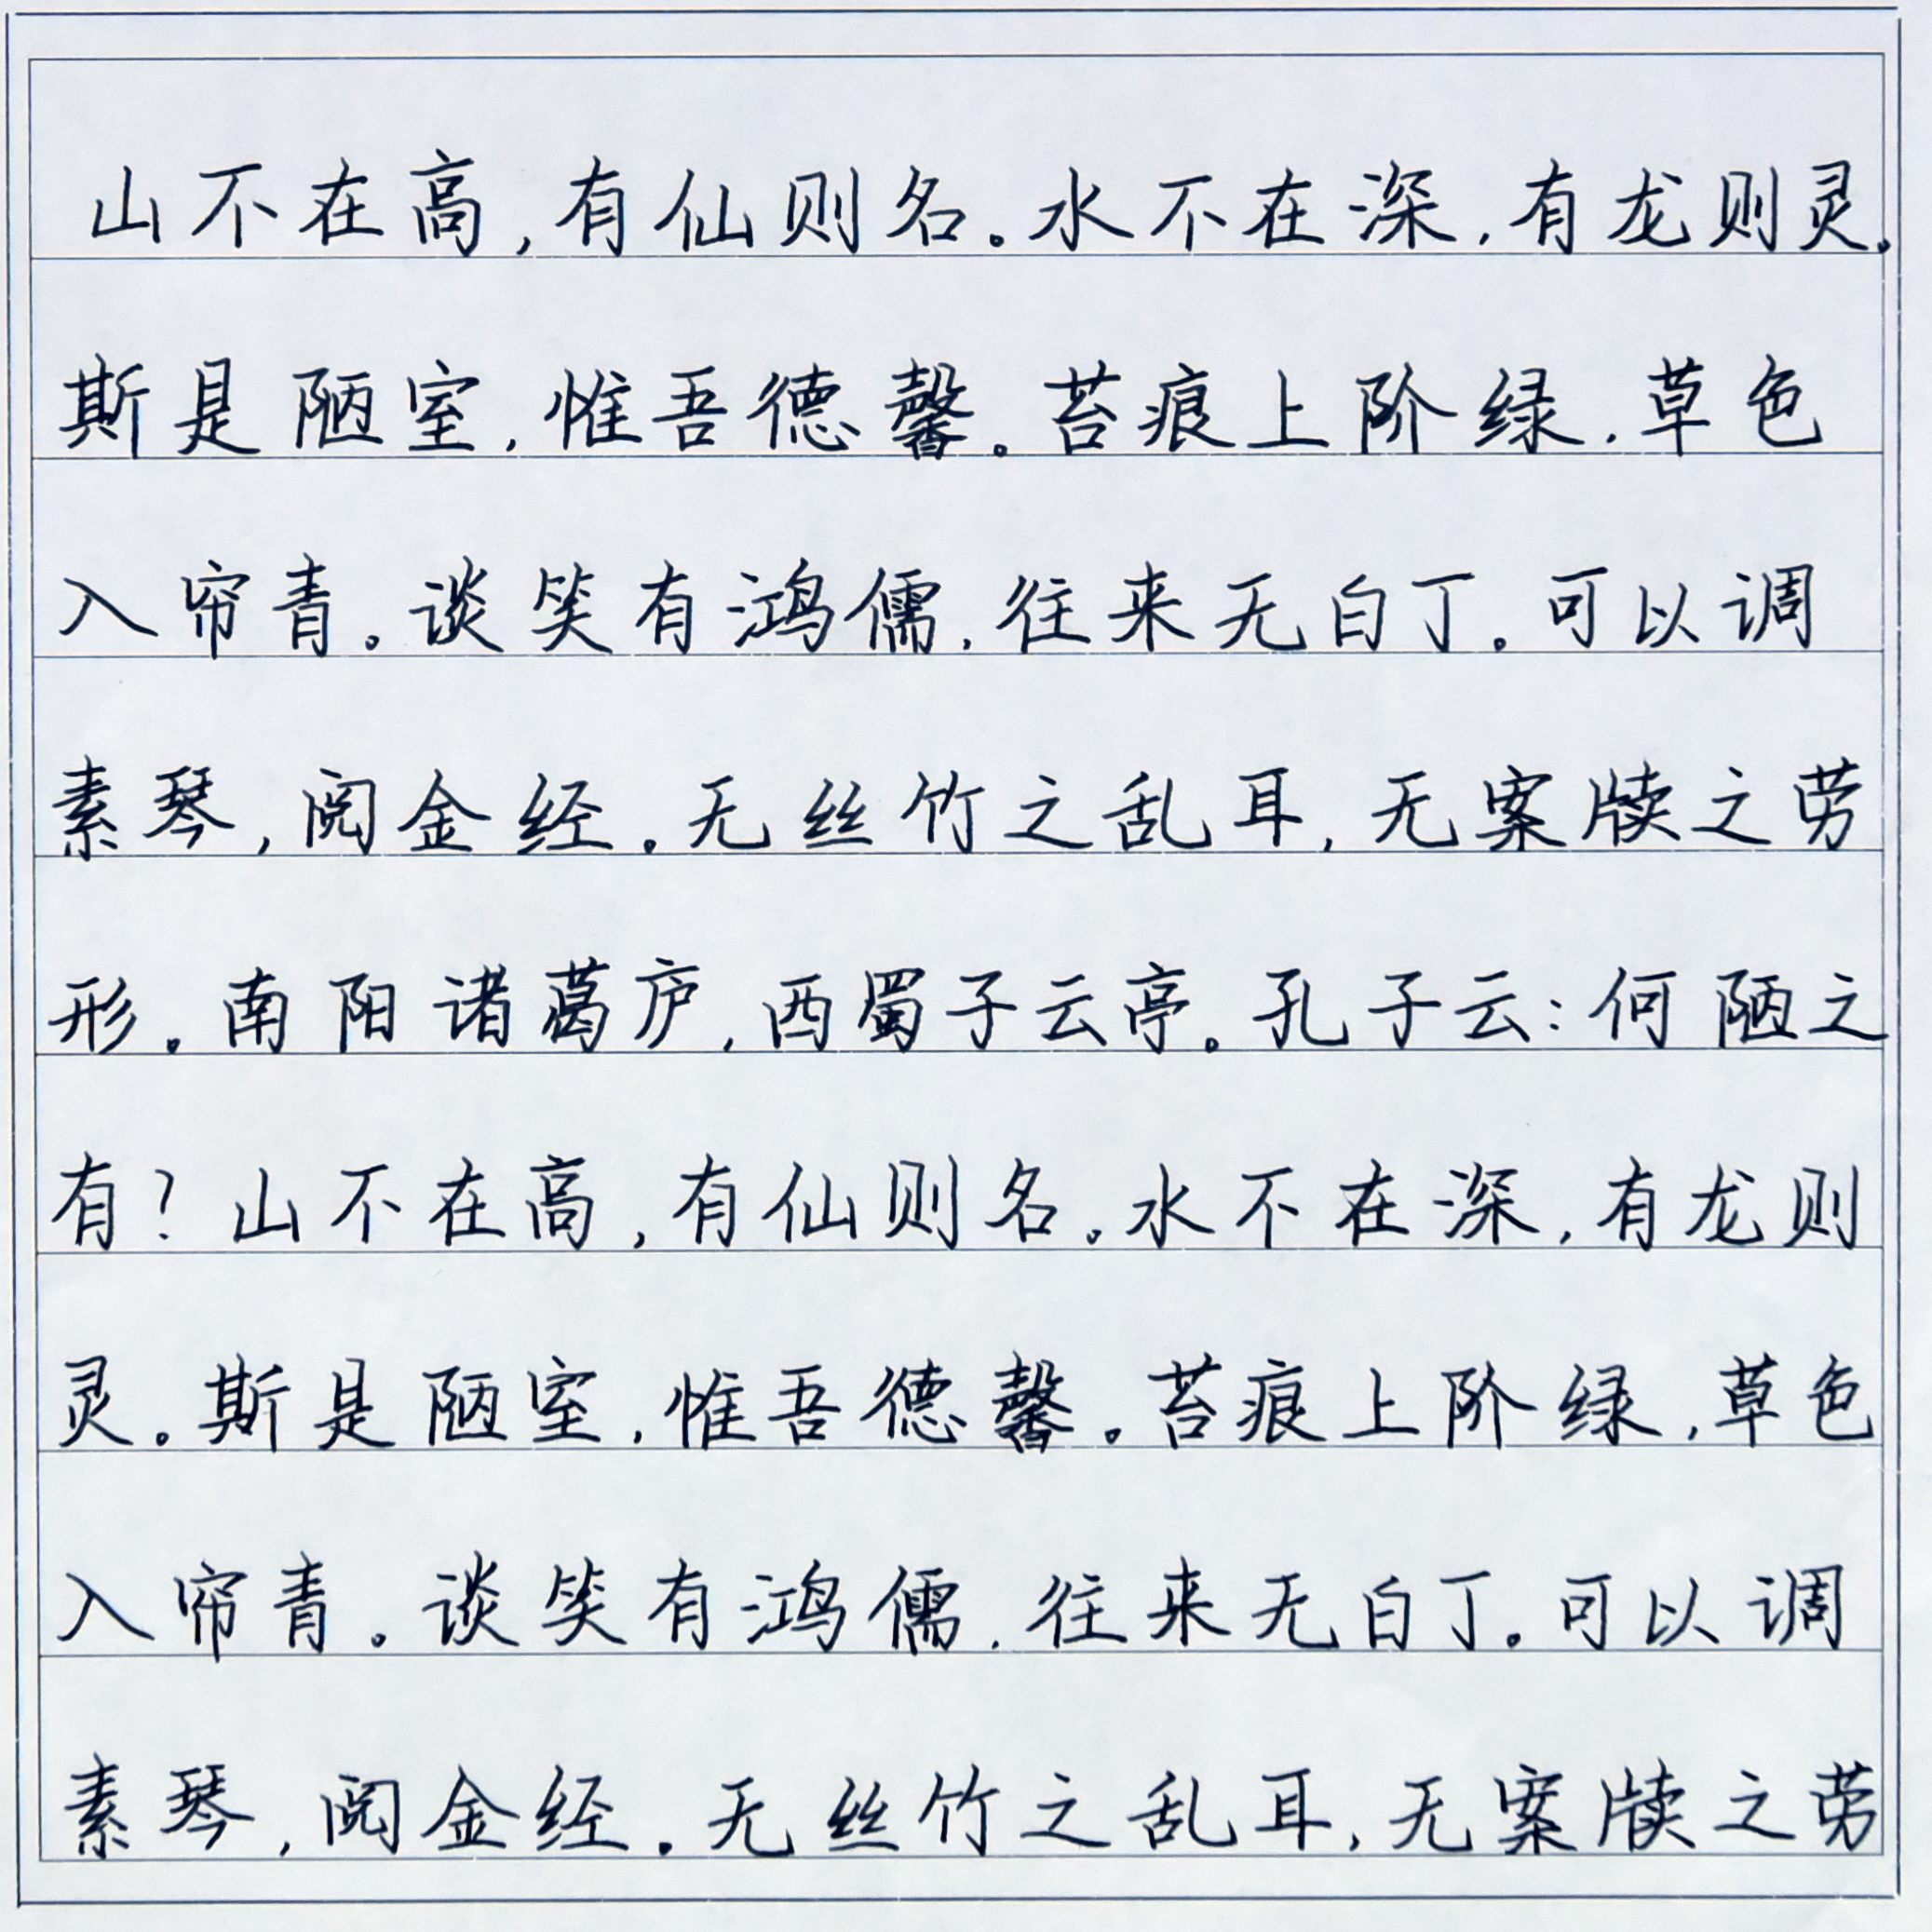 山不在高,有仙则名。水不在深,有龙则灵。
斯是陋室,惟吾德馨。苔痕上阶绿,草色
入帘青。谈笑有鸿儒,往来无白丁。可以调
素琴,阅金经。无丝竹之乱耳,无案牍之劳
形。南阳诸葛庐,西蜀子云亭。孔子云:何陋之
有?山不在高,有仙则名。水不在深,有龙则
灵。斯是陋室,惟吾德馨。苔痕上阶绿,草色
入帘青。谈笑有鸿儒,往来无白丁。可以调
素琴,阅金经。无丝竹之乱耳,无案牍之劳